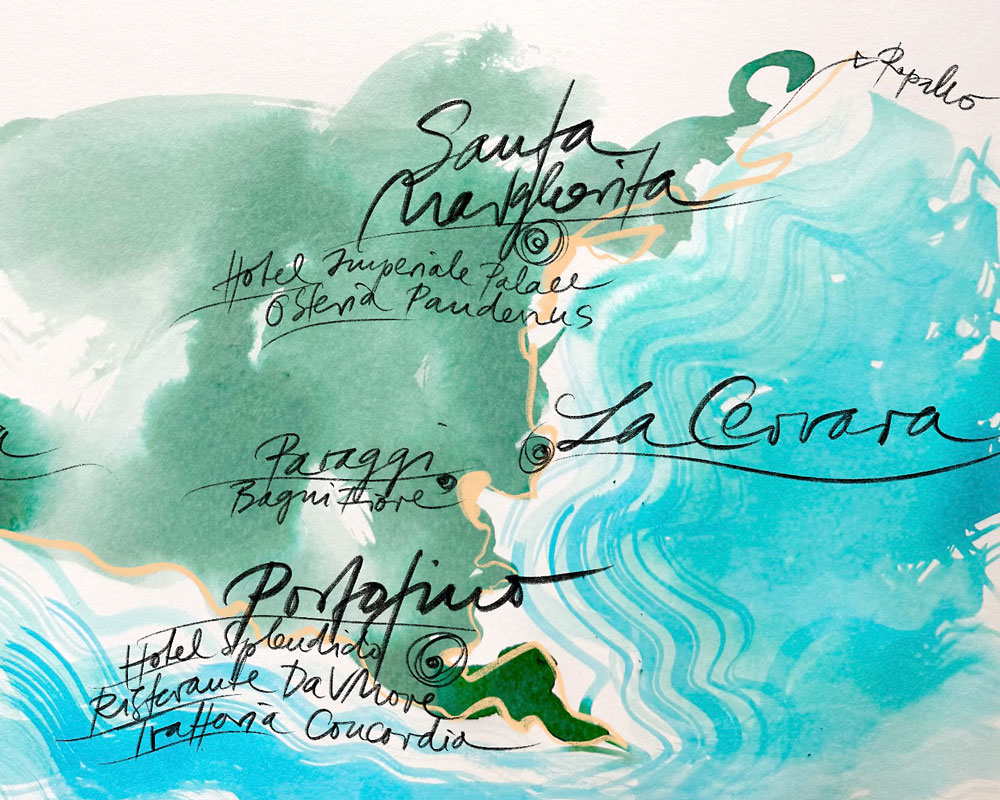 Rapallo
Santa
Margherita
Hotel Imperiale Palace
Osteria Pandemus
La Cervara
a
Paraggi
Bagni Fiore
Portofino
Hotel Splendido
Ristorante DaVMore
Trattoria Concordia